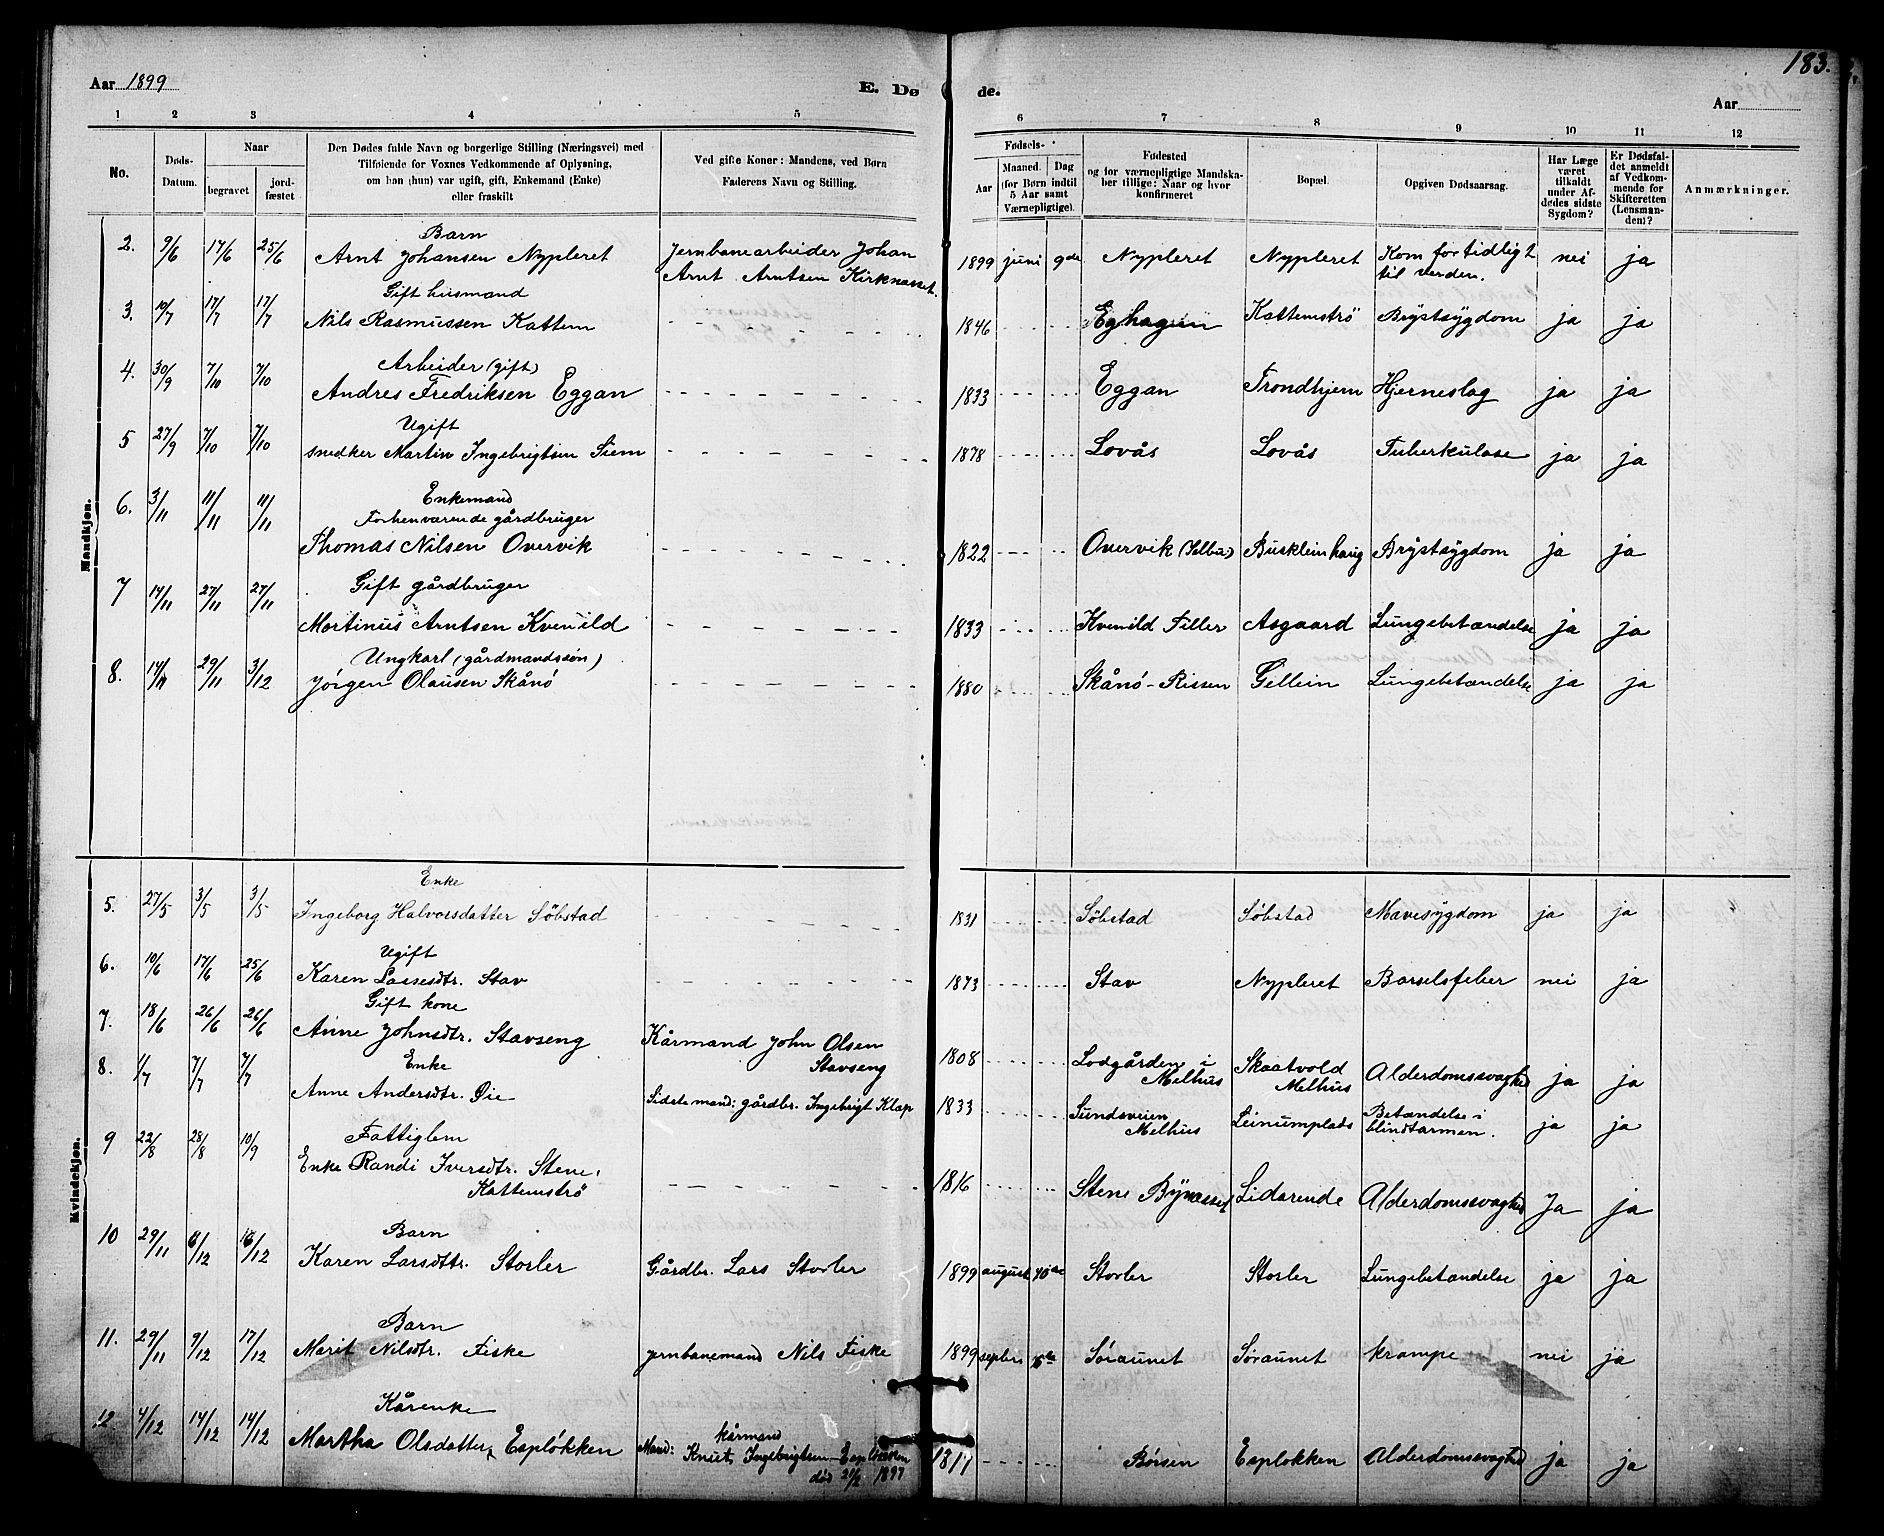 183.
Aar 1899
E. Dø
de.
Aar
1 2 3 4 5 6 7 8 9 10 11 12
No.
Døds-
Datum.
Naar
begravet
jord-
fæstet
Den Dødes fulde Navn og borgerlige Stilling (Næringsvei) med
Tilføiende for Voxnes Vedkommende af Oplysning,
om han (hun) var ugift, gift, Enkemand (Enke)
eller fraskilt
Ved gifte Koner: Mandens, ved Børn
Faderens Navn og Stilling.
Fødsels-
Aar
Maaned
Dag
(for Børn indtil
5 Aar samt
Værnepligtige).
Fødested
og for værnepligtige Mandska-
ber tillige: Naar og hvor
konfirmeret
Bopæl.
Opgiven Dødsaarsag.
Har Læge
været
tilkaldt
under Af-
dødes sidste
Sygdom?
Er Dødsfal-
det anmeldt
af Vedkom-
mende for
Skifteretten
(Lensman-
den)?
Anmærkninger.
Mandkjøn.
Barn
2. 9/6 17/6 25/6 Arnt Johansen Nypleret Jernbanearbeider Johan
Arnt Arntsen Kirknesset.
1899 juni 9de Nypleret Nypleret Kom for tidligt
til verden. nei ja
Gift husmand
3. 10/7 17/7 17/7 Nils Rasmussen Kattem 1846 Eghagen Kattemstrø Brystsygdom ja ja
Arbeider (gift)
4. 30/9 7/10 7/10 Andres Fredriksen Eggan 1833 Eggan Trondhjem Hjerneslag ja ja
Ugift
5 27/9 7/10 7/10 snedker Martin Ingebrigtsen Siem 1878 Lovås Lovås Tuberkulose ja ja
Enkemand
Forhenværende gårdbruger
6. 3/11 11/11 11/11 Thomas Nilsen Overvik 1822 Overvik (Selbu) Buskleinhaug Brystsygdom ja ja
Gift gårdbruger
7 14/11 27/11 27/11 Martinus Arntsen Kvenild 1833 Kvenild Tiller Asgaard Lungebetændelse ja ja
Ungkarl (gårdmandssøn)
8. 14/11 29/11 3/12 Jørgen Olausen Skånø 1880 Skånø-Rissen Gellein Lungebetændelse ja ja
Kvindekjøn.
Enke
5. 27/5 3/5 3/5 Ingeborg Halvorsdatter Søbstad 1831 Søbstad Søbstad Mavesygdom ja ja
Ugift
6. 10/6 17/6 25/6 Karen Lassesdtr. Stav 1873 Stav Nypleret Barselsfeber nei ja
Gift kone
7. 18/6 26/6 26/6 Anne Johnsdtr. Stavseng Kårmand John Olsen
Stavseng
1808 Lodgården i
Melhus Skaatvold
Melhus Alderdomssvaghed ja ja
Enke
8. 1/7 7/7 7/7 Anne Andersdtr. Øie Sidste mand: gårdbr. Ingebrigt Klap
1833 Sundsveien
Melhus Leinumplads Betændelse i
blindtarmen. ja ja
Fattiglem
9 22/8 28/8 10/9 Enke Randi Iversdtr. Stene,
Kattemstrø
1816 Stene Bynæsset Lidarende Alderdomssvaghed ja ja
Barn
10 29/11 /12 /12 Karen Larsdtr. Storler Gårdbr. Lars Storler 1899 august 10de Storler Storler Lungebetændelse ja ja
Barn
11. 29/11 9/12 17/12 Marit Nilsdtr. Fiske Jernbanemand Nils Fiske 1899 septbr. Søraunet Søraunet krampe nei ja
Kårenke
12. 4/12 14/12 14/12 Martha Olsdatter Espløkken kårmand
Mand: Knut Ingebrigtsen Espløkken
død 21/2 1897
1811 Børsen Espløkken Alderdomssvaghed ja ja